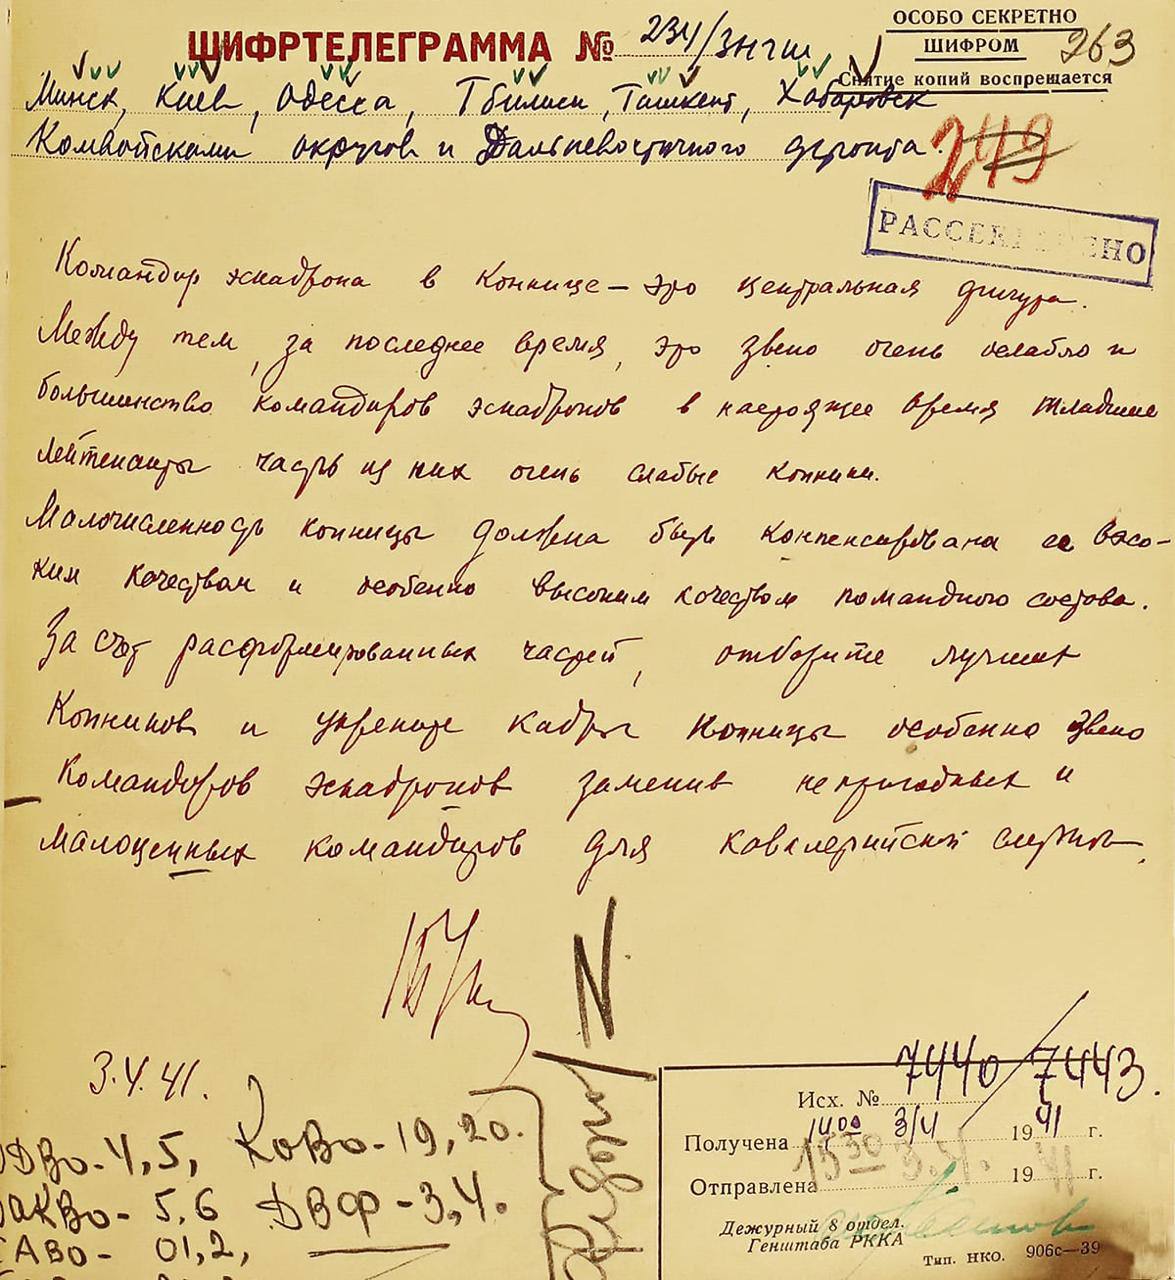 ОСОБО СЕКРЕТНО
ШИФРОМ
Снятие копий воспрещается
263
ШИФРТЕЛЕГРАММА № 234/знгш
Минск, Киев, Одесса, Тбилиси, Ташкент, Хабаровск
Комвойсками округов и Дальневосточного фронта.
249
РАССЕКРЕЧЕНО
Командир эскадрона в коннице – это центральная фигура.
Между тем, за последнее время, это звено очень ослабло и
большинство командиров эскадронов в настоящее время младшие
лейтенанты часть из них очень слабые конники.
Малочисленность конницы должна быть компенсирована ее высо-
ким качеством и особенно высоким качеством командного состава.
За счет расформированных частей, отберите лучших
Конников и укрепите кадры конницы особенно звено
Командиров эскадронов заменив непригодных и
малоценных командиров для кавалерийской службы.
3.4.41.
ОДВО - 4,5, КОВО - 19,20.
ЗАКВО - 5.6 ДВФ - 3,4.
САВО - 01,2,
7440 7443.
Исх. №
Получена 14 00 3/4 1941 г.
Отправлена 15 30 3.4. 1941 г.
Дежурный 8 отдел.
Генштаба РККА
Тип. НКО. 906с—39